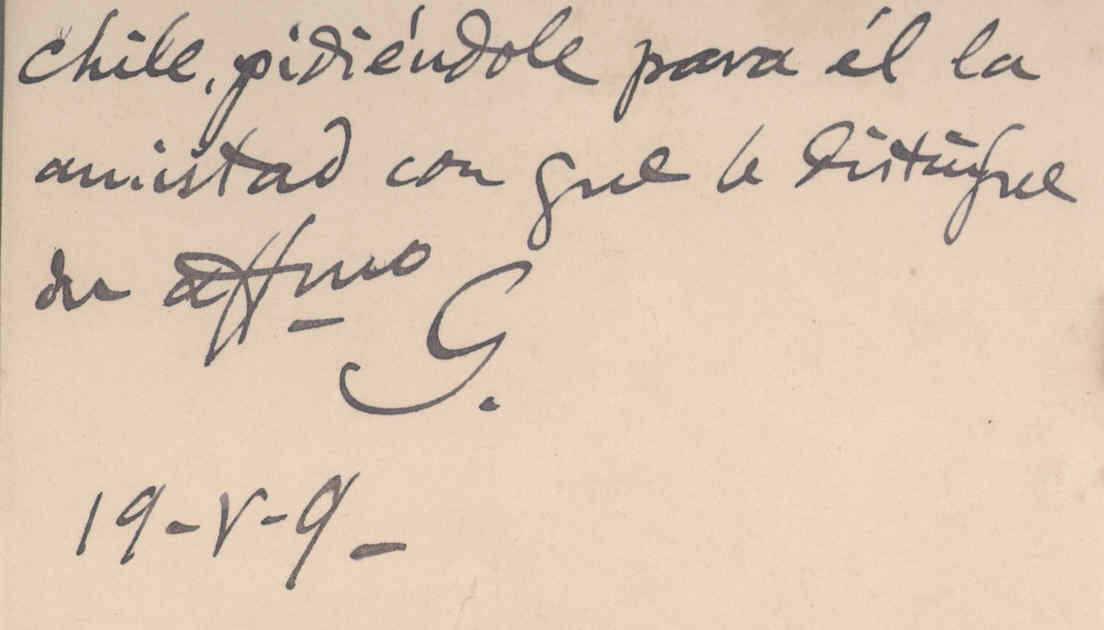 Chile, pidiéndole para él la
amistad con que le distingue
su affmo
G.
19-V-9-